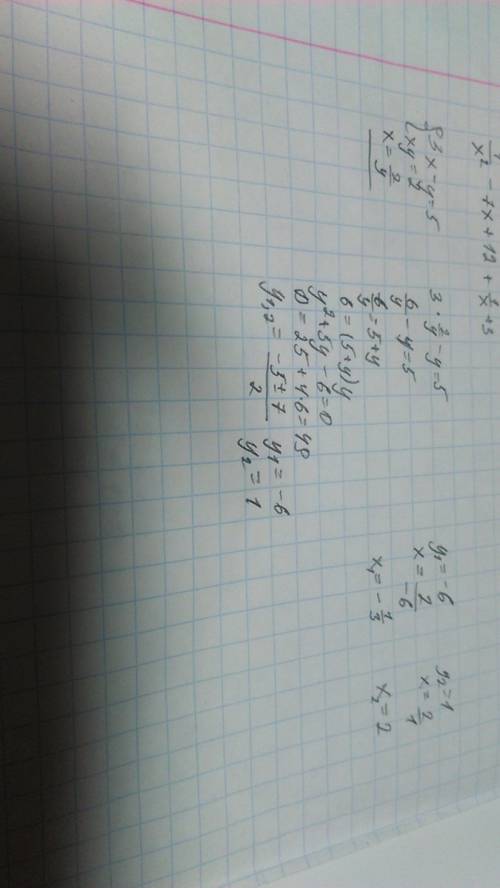 1/x² - 7x + 12 + 1/x + 3
{3x - y = 5
xy = 2
x = 2/y
3 · 2/y - y = 5
6/y - y = 5
6/y = 5 + y
6 = (5 + y)y
y² + 5y - 6 = 0
D = 25 + 4·6 = 49
y₁,₂ = (-5 ± 7)/2
y₁ = -6
y₂ = 1
y₁ = -6
x = 2/-6
x₁ = -1/3
y₂ = 1
x = 2/1
x₂ = 2